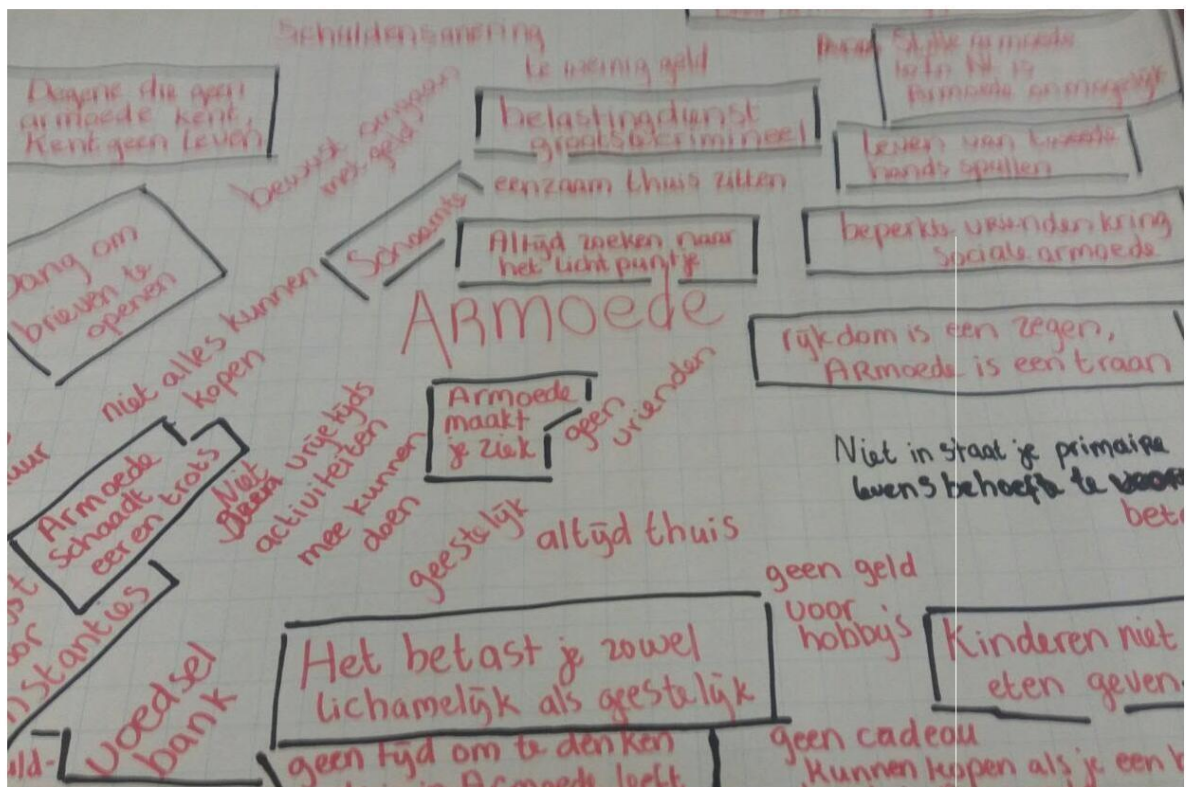 Schuldensanering
te weinig geld
Stille armoede
in NL is
Armoede onmogelijk
Degene die geen
armoede kent,
kent geen leven
bewust omgaan
met geld
belastingdienst
graatste crimineel
Leven van tweede
hands spullen
Schaamte
eenzaam thuis zitten
beperkte vriendenkring
sociale armoede
Bang om
brieven te
openen
Altijd zoeken naar
het lichtpuntje
niet alles kunnen
kopen
ARMOEDE
rijkdom is een zegen,
ARmoede is een traan
Armoede
maakt
je ziek
geen
vrienden
Niet in staat je primaire
levensbehoefte te
bet
uur
Armoede
schaadt
eer en trots
Niet
vrijetijds
activiteiten
mee kunnen
doen
geestelijk
altijd thuis
geen geld
voor
hobby's
st
or
nstanties
Het betast je zowel
lichamelijk als geestelijk
Kinderen niet
eten geven
voedsel
bank
ld-
geen tijd om te denken
Armoede leeft
geen cadeau
kunnen kopen als je een